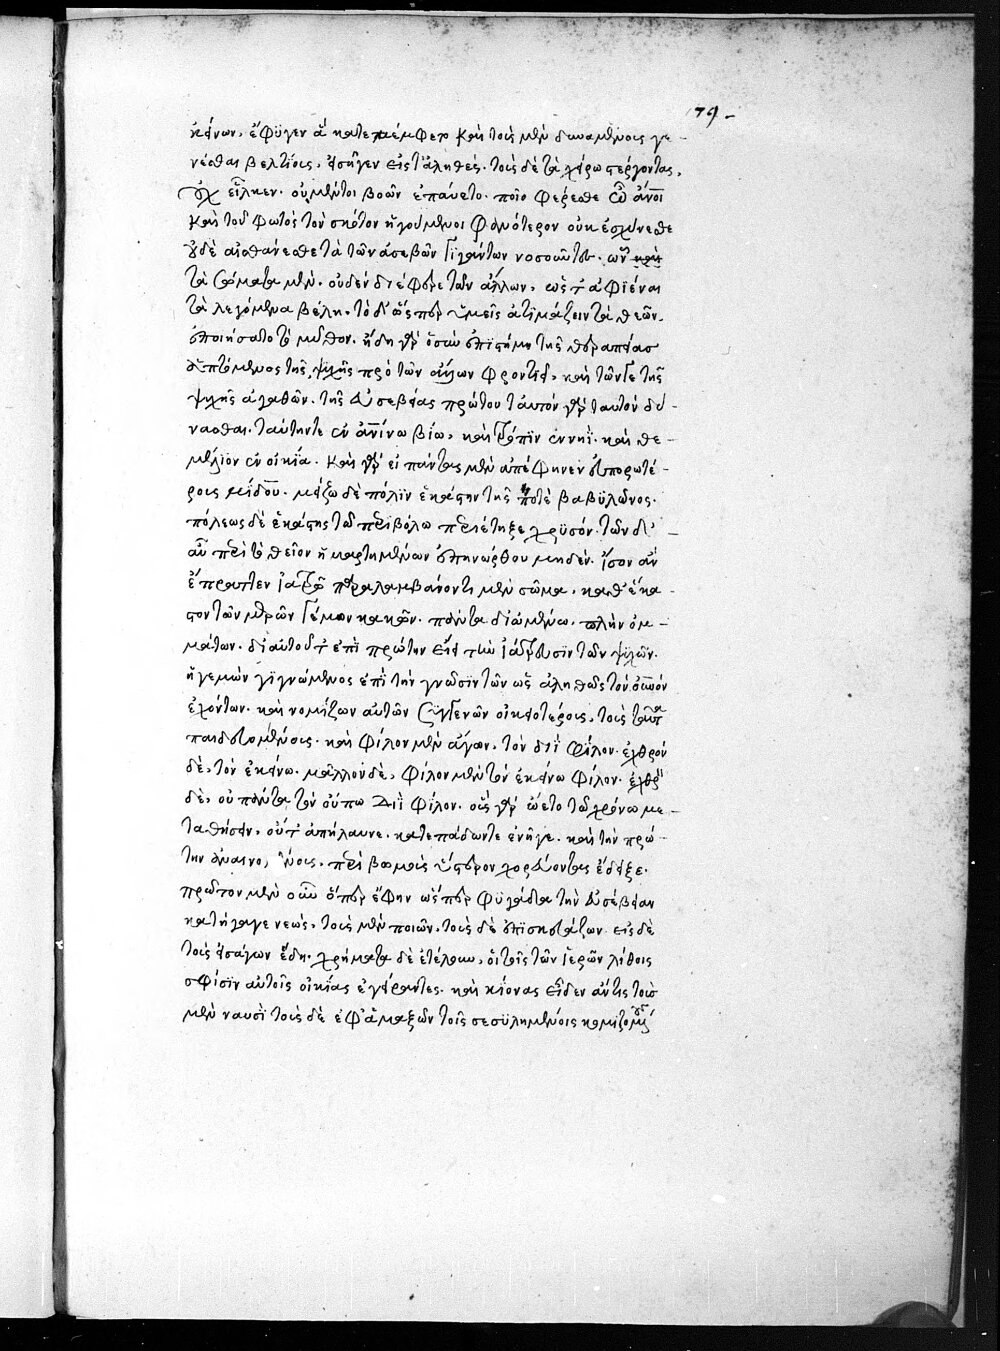 79
κείνων, ἔφυγεν ἃ κατεπέμφει. καὶ τοῖς μὲν δυναμένοις γε-
νέσθαι βελτίοις, εἰσῆγεν εἰς τἀληθές. τοὺς δὲ τὰ χείρω στέργοντας,
οὐχ εἷλκεν. οὐ μέντοι βοῶν ἐπαύετο. ποῖ φέρεσθε ὦ ἄνοι
καὶ τοῦ φωτὸς τὸν σκότον ἡγούμενοι φανότερον οὐκ ἐσχύνεσθε
οὐδὲ αἰσθάνεσθε τὰ τῶν ἀσεβῶν γιγάντων νοσοῦντες. ὧν
τὰ σώματα μὲν. οὐδὲν διέφερε τῶν ἄλλων, ὡς τ ἀφιέναι
τὰ λεγόμενα βέλη. τὸ δ' ὥσπερ ὑμεῖς ἀτιμάζειν τὰ θεῶν.
ἐποιήσατο τὸ μῦθον. ἤδη γὰρ ὅσων ἐπιστήμη τῆς θεραπείας
ἁπτόμενος τῆς ψυχῆς πρὸ τῶν ἄλλων φροντίδ, καὶ τῶν γε τῆς
ψυχῆς ἀγαθῶν. τῆς εὐσεβείας πρώτου ταυτὸν γὰρ ταυτὸν δύ-
νασθαι. ταύτην τε ἐν ἀνίνω βίω, καὶ τρόπιν ἐν νηῒ. καὶ θε-
μέλιον ἐν οἰκία. καὶ γὰρ εἰ πάντας μὲν ἀπέφηνεν εὐπορωτέ-
ρους μίδου. μείζω δὲ πόλιν ἑκάστην τῆς ποτὲ βαβυλῶνος.
πόλεως δὲ ἑκάστης τῶ περιβόλω περιέτηξε χρυσόν. τῶν δ'
αὖ περὶ τὸ θεῖον ἡμαρτημένων ἐπηνώρθου μηδὲν. ἴσον ἂν
ἔπραττεν ἰατρῶ παραλαμβάνοντι μὲν σῶμα, καθ' ἕκα-
στον τῶν μερῶν γέμον κακῶν. πάντα δὲ ἰωμένω. πλὴν ὀμ-
μάτων. διὰ τοῦτ ἐπὶ πρώτην εἶς τὴν ἰάτρευσιν τῶν ψυχῶν.
ἡγεμὼν γιγνόμενος ἐπὶ τὴν γνῶσιν τῶν ὡς ἀληθῶς τὸν οὐνόν
ἐχόντων. καὶ νομίζων αὐτῶν συγγενῶν οἰκειοτέρους, τοὺς ταῦτα
παιδευομένους. καὶ φίλον μὲν ἄγων, τὸν διῒ φίλον. ἐχθρόν
δὲ, τὸν ἐκείνω. μᾶλλον δὲ, φίλον μὲν τὸν ἐκείνω φίλον. ἐχθρὸν
δὲ, οὐ πάντα τὸν οὔπω διῒ φίλον. οὓς γὰρ ὤετο τῶ χρόνω με-
ταθήσειν, οὔτ' ἀπήλαυνε. κατεπάδων τε ἐνῆγε. καὶ τὴν πρώ-
την ἀναινομένους. περὶ βωμοὺς ὕστερον χορεύοντας ἔδειξε.
πρῶτον μὲν οὖν ὅπερ ἔφην ὥσπερ φυγάδα τὴν εὐσέβειαν
κατήγαγε νεὼς, τοὺς μὲν ποιῶν, τοὺς δὲ ἐπισκευάζων. εἰς δὲ
τοὺς εἰσάγων ἕδη. χρήματα δὲ ἐτέλουν, οἱ τοῖς τῶν ἱερῶν λίθοις
σφίσιν αὐτοῖς οἰκίας ἐγείραντες. καὶ κίονας εἶδεν ἄν τις τοὺς
μὲν ναυσὶ τοὺς δὲ ἐφ' ἁμαξῶν τοῖς σεσυλημένοις κομιζομένους